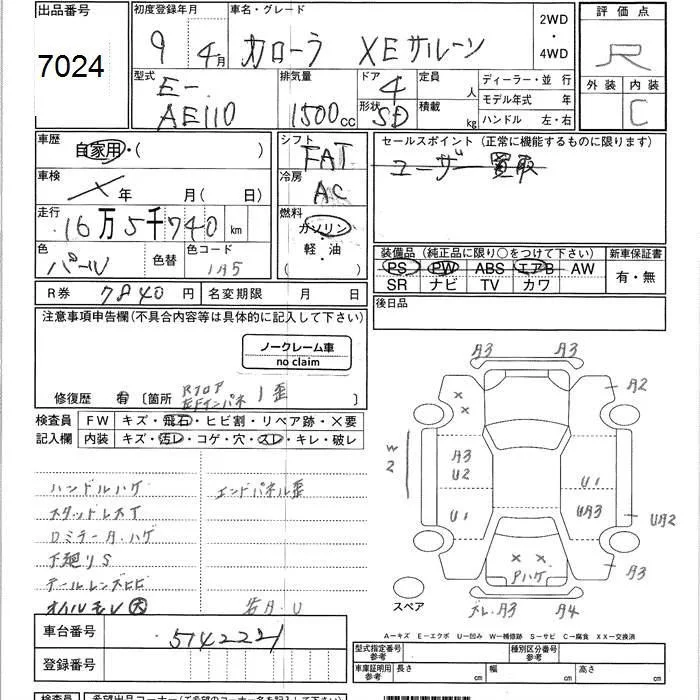 出品番号
7024
初度登録年月
9 年 4月
車名・グレード
カローラ XEサルーン
2WD
・
4WD
評価点
R
外装 内装
C
型式
E-
AE110
排気量
1500cc
ドア
4
形状
SD
定員
人
積載
kg
ディーラー・並行
モデル年式 年
ハンドル 左・右
車歴
自家用・( )
車検
年 月( 日)
走行
16万5千740km
色
パール
色替
色コード
1A5
シフト
FAT
冷房
AC
燃料
ガソリン
軽・油
( )
セールスポイント(正常に機能するものに限ります)
ユーザー買取
装備品(純正品に限り○をつけて下さい)
新車保証書
PS PW ABS エアB AW
SR ナビ TV カワ
有・無
R券 7840円
名変期限 月 日
後日品
注意事項申告欄(不具合内容等は具体的に記入して下さい)
ノークレーム車
no claim
修復歴 有 [箇所 ]
Rフロア
歪
検査員
記入欄
FW キズ・飛石・ヒビ割・リペア跡・×要
内装 キズ・汚レ・コゲ・穴・スレ・キレ・破レ
ハンドルハゲ
エンドパネル歪
スタットレスT
下廻りS
テールレンズヒビ
オイルモレ 大
若A.U
A3 A3
A2
W2
A3
U2
U1
U1
UA3
UA2
A3
Pハゲ
A3 A4
スペア
車台番号 5142221
登録番号
A-キズ E-エクボ U-凹み W-補修跡 S-サビ C-腐食 XX-交換済
型式指定番号
参考
種別区分番号
参考
車庫証明用
参考
長さ cm 幅 cm 高さ cm
検査員
希望出品コーナー(ご希望のコーナー名を記入下さい)